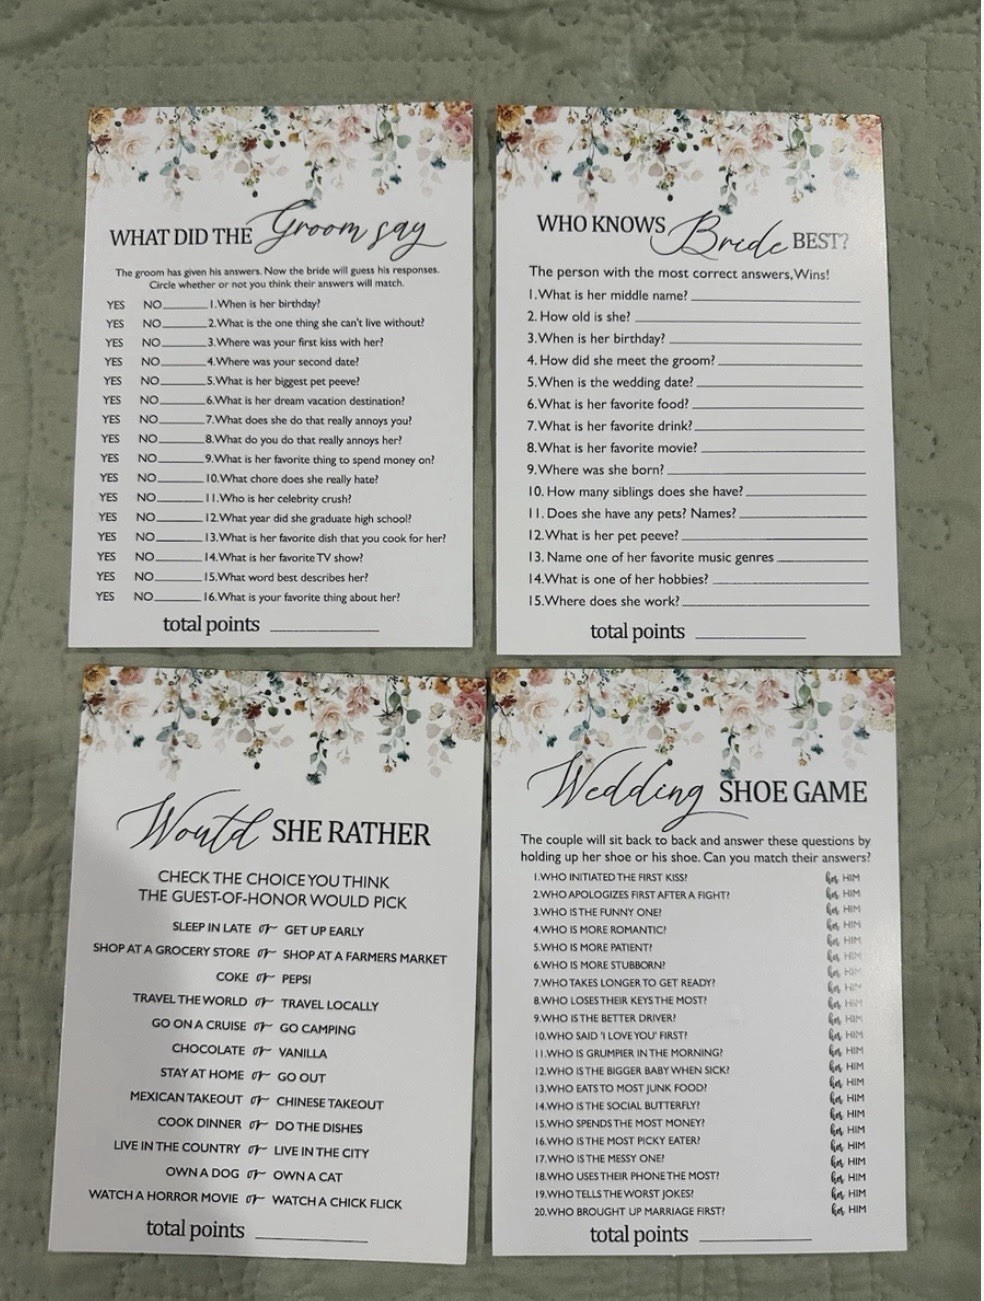 WHAT DID THE Groom say
The groom has given his answers. Now the bride will guess his responses.
Circle whether or not you think their answers will match.
YES NO______1.When is her birthday?
YES NO______2.What is the one thing she can't live without?
YES NO______3.Where was your first kiss with her?
YES NO______4.Where was your second date?
YES NO______5.What is her biggest pet peeve?
YES NO______6.What is her dream vacation destination?
YES NO______7.What does she do that really annoys you?
YES NO______8.What do you do that really annoys her?
YES NO______9.What is her favorite thing to spend money on?
YES NO______10.What chore does she really hate?
YES NO______11.Who is her celebrity crush?
YES NO______12.What year did she graduate high school?
YES NO______13.What is her favorite dish that you cook for her?
YES NO______14.What is her favorite TV show?
YES NO______15.What word best describes her?
YES NO______16.What is your favorite thing about her?
total points ______
WHO KNOWS Bride BEST?
The person with the most correct answers, Wins!
1.What is her middle name? ______
2. How old is she? ______
3.When is her birthday? ______
4. How did she meet the groom? ______
5.When is the wedding date? ______
6.What is her favorite food? ______
7.What is her favorite drink? ______
8.What is her favorite movie? ______
9.Where was she born? ______
10. How many siblings does she have? ______
11. Does she have any pets? Names? ______
12.What is her pet peeve? ______
13. Name one of her favorite music genres ______
14.What is one of her hobbies? ______
15.Where does she work? ______
total points ______
Would SHE RATHER
CHECK THE CHOICE YOU THINK
THE GUEST-OF-HONOR WOULD PICK
SLEEP IN LATE or GET UP EARLY
SHOP AT A GROCERY STORE or SHOP AT A FARMERS MARKET
COKE or PEPSI
TRAVEL THE WORLD or TRAVEL LOCALLY
GO ON A CRUISE or GO CAMPING
CHOCOLATE or VANILLA
STAY AT HOME or GO OUT
MEXICAN TAKEOUT or CHINESE TAKEOUT
COOK DINNER or DO THE DISHES
LIVE IN THE COUNTRY or LIVE IN THE CITY
OWN A DOG or OWN A CAT
WATCH A HORROR MOVIE or WATCH A CHICK FLICK
total points ______
Wedding SHOE GAME
The couple will sit back to back and answer these questions by
holding up her shoe or his shoe. Can you match their answers?
1.WHO INITIATED THE FIRST KISS? her HIM
2.WHO APOLOGIZES FIRST AFTER A FIGHT? her HIM
3.WHO IS THE FUNNY ONE? her HIM
4.WHO IS MORE ROMANTIC? her HIM
5.WHO IS MORE PATIENT? her HIM
6.WHO IS MORE STUBBORN? her HIM
7.WHO TAKES LONGER TO GET READY? her HIM
8.WHO LOSES THEIR KEYS THE MOST? her HIM
9.WHO IS THE BETTER DRIVER? her HIM
10.WHO SAID 'I LOVE YOU' FIRST? her HIM
11.WHO IS GRUMPIER IN THE MORNING? her HIM
12.WHO IS THE BIGGER BABY WHEN SICK? her HIM
13.WHO EATS TO MOST JUNK FOOD? her HIM
14.WHO IS THE SOCIAL BUTTERFLY? her HIM
15.WHO SPENDS THE MOST MONEY? her HIM
16.WHO IS THE MOST PICKY EATER? her HIM
17.WHO IS THE MESSY ONE? her HIM
18.WHO USES THEIR PHONE THE MOST? her HIM
19.WHO TELLS THE WORST JOKES? her HIM
20.WHO BROUGHT UP MARRIAGE FIRST? her HIM
total points ______